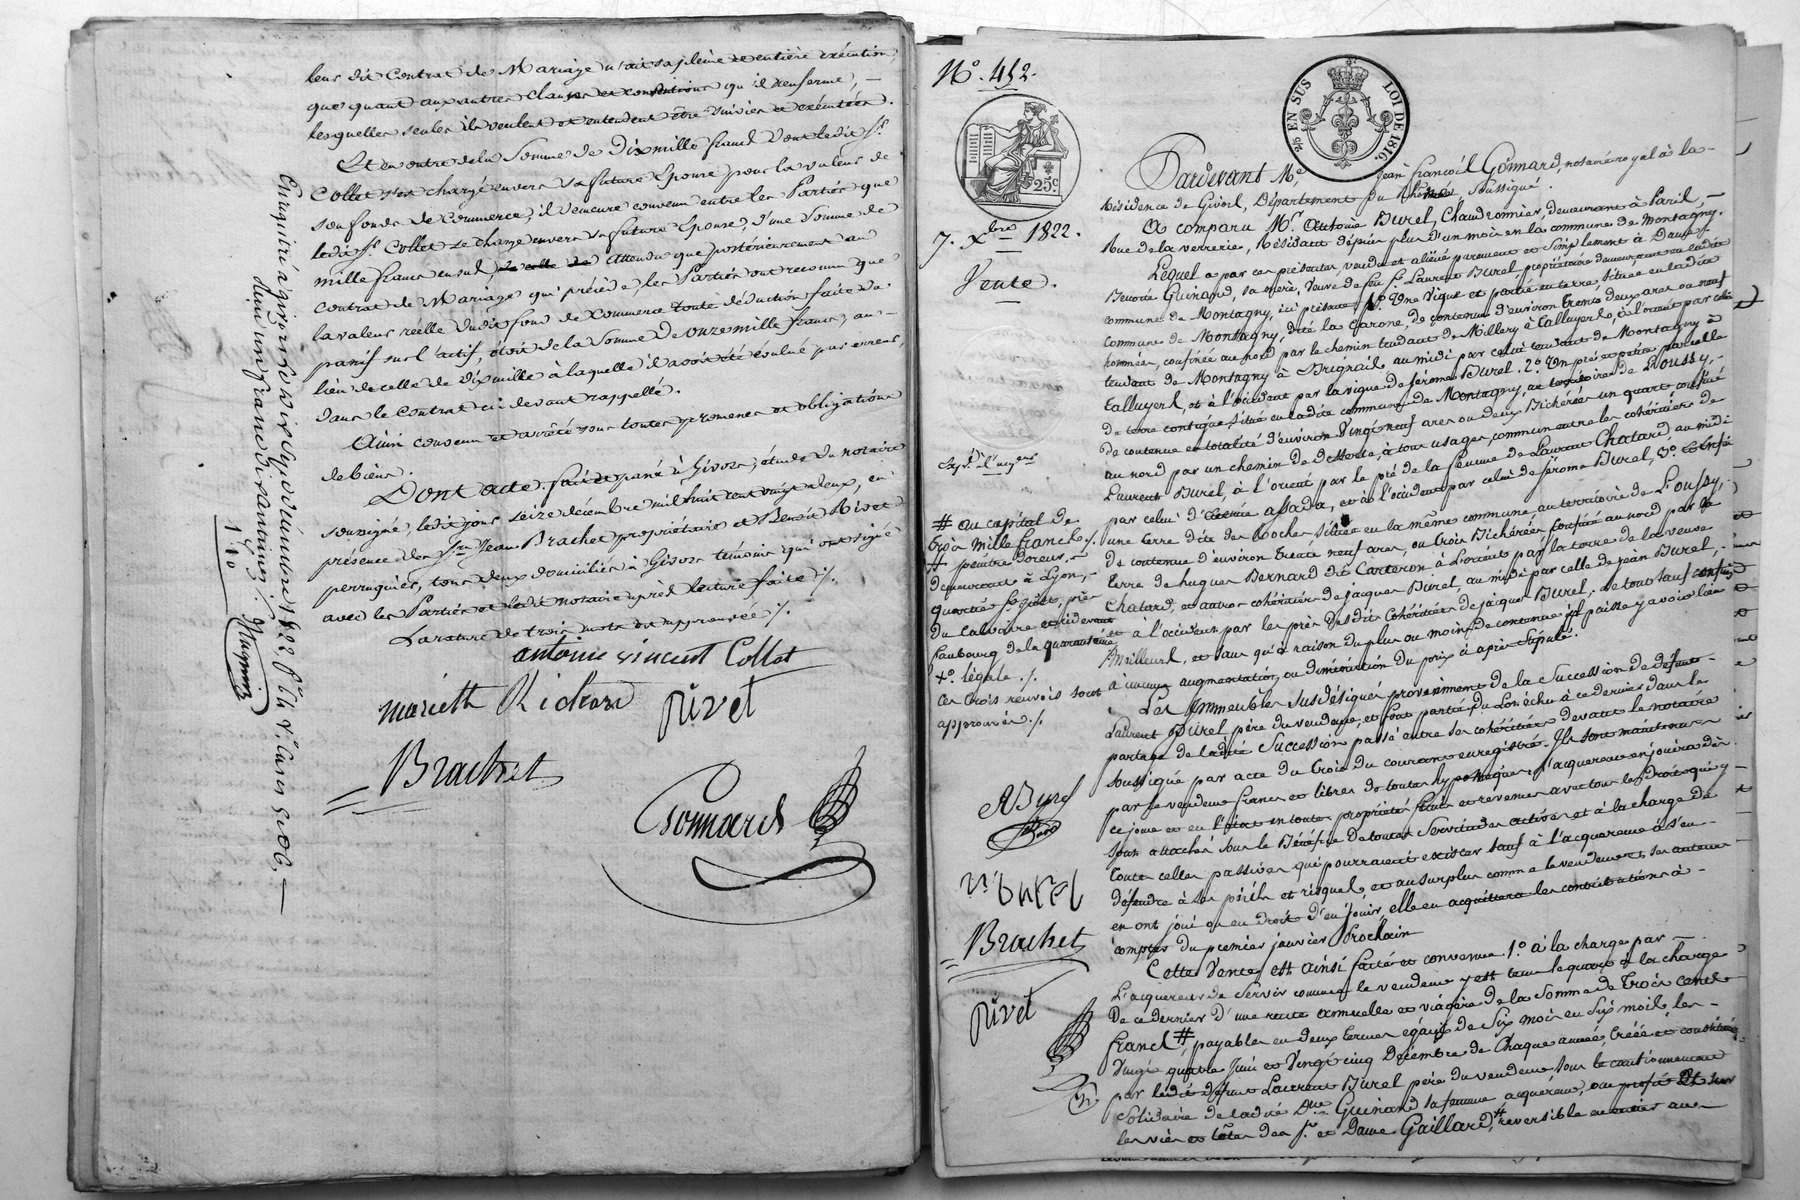 leur dit Contrat de Mariage n'ait sa pleine et entière exécution,
que quant aux autres clauses et conventions qu'il renferme, —
lesquelles seules ils veulent et entendent être suivies et exécutées.
Et en outre de la Somme de Dix mille francs dont ledit Sr.
Collet s'est chargé envers sa future Epouse pour la valeur de
son fonds de Commerce, il demeure convenu entre les Parties que
ledit Sr. Collet se charge envers sa future Epouse, d'une Somme de
mille francs en sus, attendu que postérieurement au
contrat de Mariage qui précède, les Parties ont reconnu que
la valeur réelle dudit fond de Commerce toute déduction faite du
passif sur l'actif, étoit de la Somme de onze mille francs, au —
lieu de celle de dix mille à laquelle il avoit été évalué par erreur,
dans le contrat ci devant rappellé.
Ainsi convenu et arrêté sous toutes promesses et obligations
de biens.
Dont acte. fait et passé à Givors, étude du notaire
soussigné, ledit jour seize décembre mil huit cent vingt deux, en
présence des Srs. Jean Brachet propriétaire et Benoît Rivet
perruquier, tous deux domiciliés à Givors témoins qui ont signé
avec les Parties et ledit notaire après lecture faite ./.
La rature de trois mots est approuvée ./.
antoine vincent Collet
mariette Richard
rivet
Brachet
Gonnard
Enregistré à givors le dix Xbre 1822, fo. 66 Vo. Cases
Reçu un franc dix centimes ./.
1
10
1 10
No. 452.
25 EN SUS
LOI DE 1816.
25c.
7. Xbre 1822.
Vente.
Pardevant Me. Jean François Gonnard, notaire royal à la —
Résidence de Givors, Département du Rhône Soussigné.
A comparu Mr. Antoine Burel, Chaudronnier, demeurant à Paris, —
Rue de la verrerie, Résidant depuis plus d'un mois en la commune de Montagny.
Lequel a par ces présentes, vendu et aliéné purement et simplement à Dame
Benoîte Guinand, sa mère, Veuve de feu Sr. Laurent Burel, propriétaire demeurant en ladite
commune de Montagny, ici présente 1o. Une Vigne et partie en terre, située en ladite
commune de Montagny, dite la Garone, de contenue d'environ trente deux ares ou neuf
hommées, confinée au nord par le chemin tendant de Millery à Talluyers, à l'orient par celui
tendant de Montagny à Brignais, au midi par celui tendant de Montagny à
Talluyers, et à l'occident par la vigne de Jérôme Burel. 2o. Un pré et petite parcelle
de terre contigue situé en ladite commune de Montagny, au territoire de Loussy, —
de contenue en totalité d'environ Vingt neuf ares ou deux Bichérées un quart confiné
au nord par un chemin de desserte, à tous usages, commun entre les cohéritiers de
Laurent Burel, à l'orient par le pré de la femme de Laurent Chatard au midi
par celui d' assada, et à l'occident par celui de Jérôme Burel, 3o. et enfin
une terre dite des Roches située en la même commune au territoire de Loussy,
de contenue d'environ trente neuf ares, ou trois Bichérées, confinée au nord par la
terre de hugues Bernard dit Carteron à l'orient par la terre de la veuve
Chatard, et autres cohéritiers de jacques Burel, au midi par celle de jean Burel, —
et à l'occident par les près desdits Cohéritiers de jacques Burel, le tout sauf confins
meilleurs, et sans qu'à raison du plus ou moins de contenue il puisse y avoir lieu
à aucune augmentation, ou diminution du prix ci après Stipulé.
Les Immeubles susdésignés proviennent de la Succession de défunt —
Laurent Burel père du vendeur, et font partie du Lot échu à ce dernier dans le
partage de ladite Succession passé entre les cohéritiers devant le notaire
soussigné par acte du trois du courant enregistré. Ils sont maintenus
par le vendeur francs et libres de toutes hypothèques, l'acquereuse en jouira dès
ce jour et en l'état en toute propriété fruits et revenus avec tous les droits qui y —
sont attachés sous le Bénéfice de toutes Servitudes actives et à la charge de
toutes celles passives qui pourraient exister sauf à l'acquereuse à s'en —
défendre à ses périls et risques, et au surplus comme le vendeur et ses auteurs
en ont joui ou eu droit d'en jouir, elle en acquittera les contributions à —
compter du premier janvier Prochain
Cette Vente est ainsi faite et convenue 1o. à la charge par —
L'acquereuse de Servir comme le vendeur y est tenu le quart à la charge
de ce dernier d'une rente annuelle et viagère de la Somme de trois cent
francs #, payable en deux termes égaux de six mois en six mois les —
Vingt quatre juin et Vingt cinq Décembre de Chaque année, Créée et constituée
par ledit défunt Laurent Burel père du vendeur sous le cautionnement
Solidaire de ladite Dme. Guinand sa femme acquereuse, au profit et sur
les vies et têtes des Sr. et Dame Gaillard, # reversible en entier au —
# au capital de
trois mille francs ./.
# peintre doreur, —
demeurant à Lyon,
quartier St. Just, près
du Calvaire et cidevant
faubourg de la quarantaine
Xo. légale ./.
Ces trois renvois sont
approuvés ./.
ABurel
Vve. Burel
Brachet
rivet